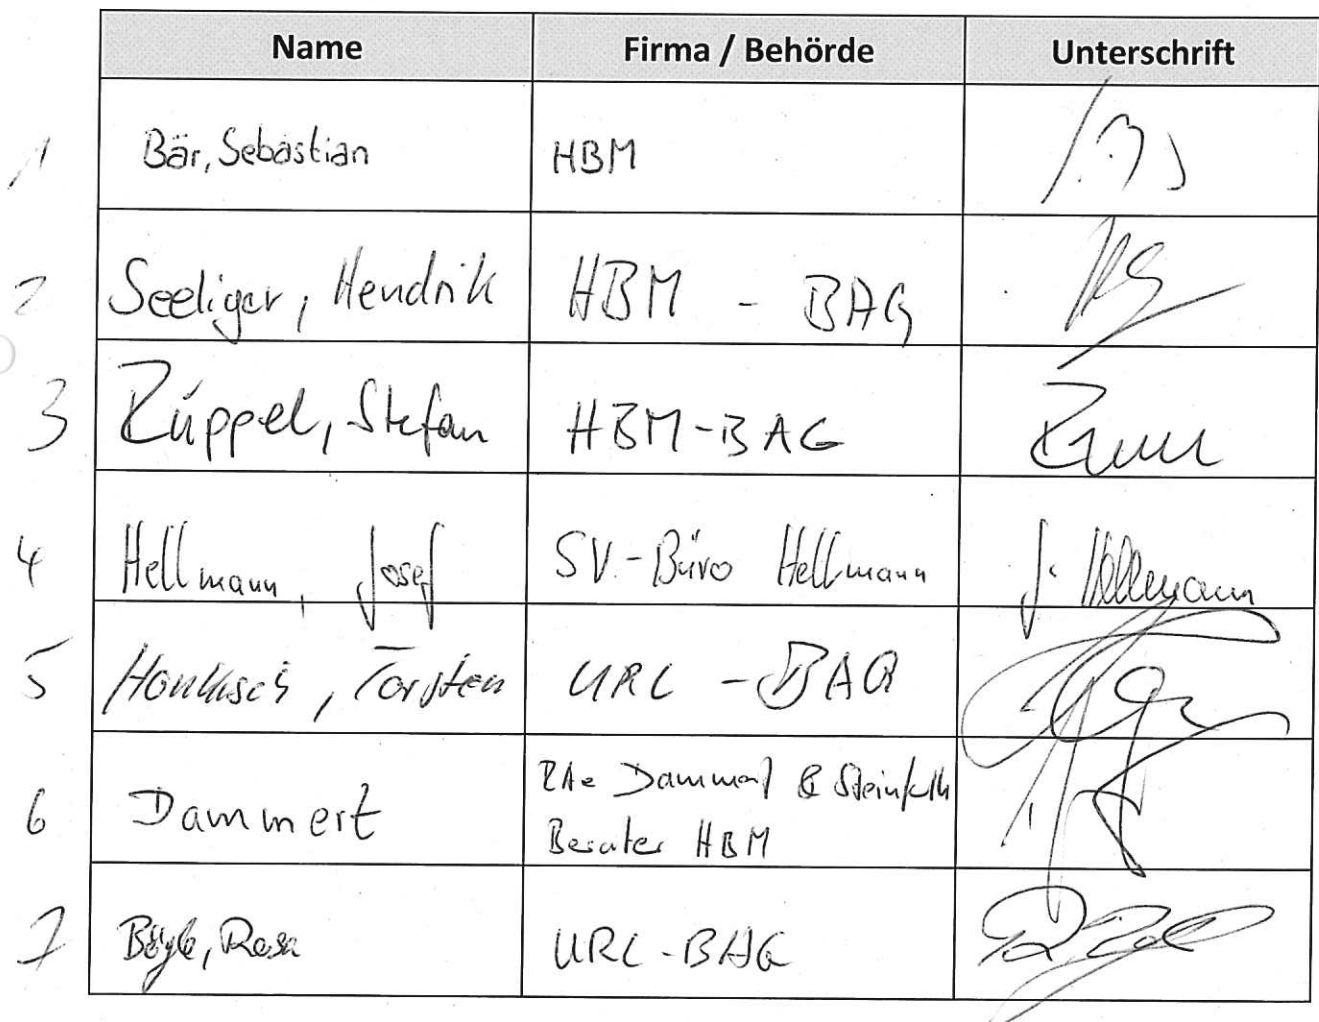 Name Firma / Behörde Unterschrift
1 Bär, Sebastian HBM
2 Seeliger, Hendrik HBM - BAG
3 Rüppel, Stefan HBM-BAG
4 Hellmann, Josef SV-Büro Hellmann J. Hellmann
5 Torsten URC - BAG
6 Dammert RAe Dammert & Steinforth
Berater HBM
7 Rosa URC-BAG